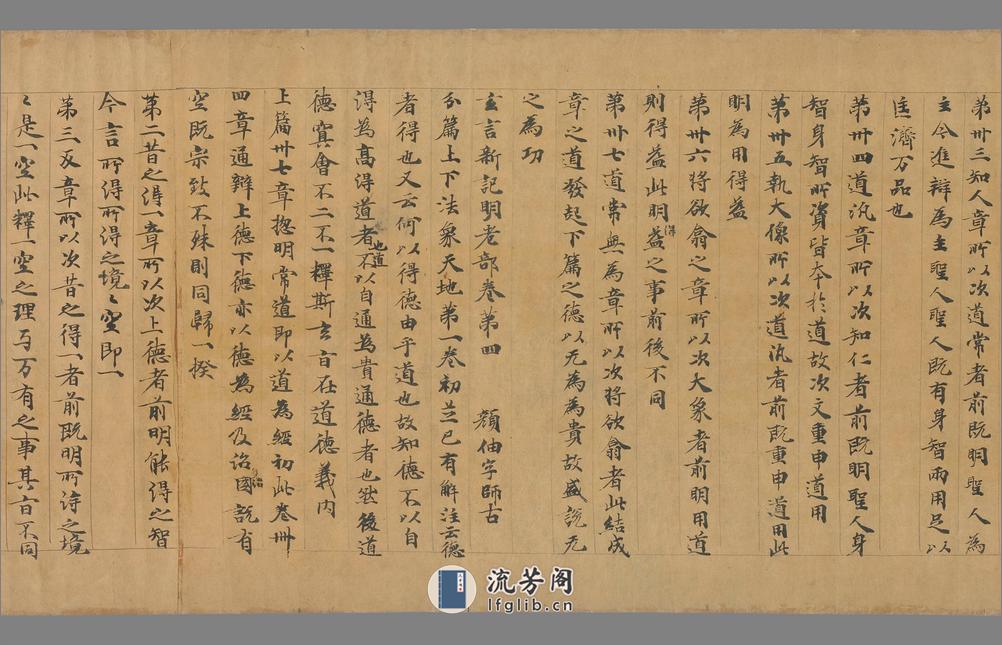 第卅三知人章所以次道常者前既明聖人為
主今進辯為主聖人聖人既有身智兩用足以
匡濟万品也
第卅四道汎章所以次知仁者前既明聖人身
智身智所資皆本於道故次文重申道用
第卅五執大像所以次道汎者前既重申道用此
明為用得益
第卅六将欲翕之章所以次大象者前明用道
則得益此明益之事前後不同
第卅七道常無為章所以次将欲翕者此結成
章之道發起下篇之德以无為為貴故盛說无
之為功
玄言新記明老部卷第四 顏伷字師古
分篇上下法象天地第一卷初並已有解注云德
者得也又云何以得德由乎道也故知德不以自
得為髙得道者不以自通為貴通德者也然後道
也道
德宾會不二不一釋斯玄旨在道德義內
上篇卅七章揔明常道即以道為經初此卷卌
四章通辯上德下德亦以德為經及治國說有
治
空既宗致不殊則同歸一揆
第二昔之得一章所以次上德者前明能得之智
今言所得所得之境〻空即一
第三反章所以次昔之得一者前既明所詩之境
〻是一空此釋一空之理与万有之事其旨不同
流芳阁
lfglib.cn